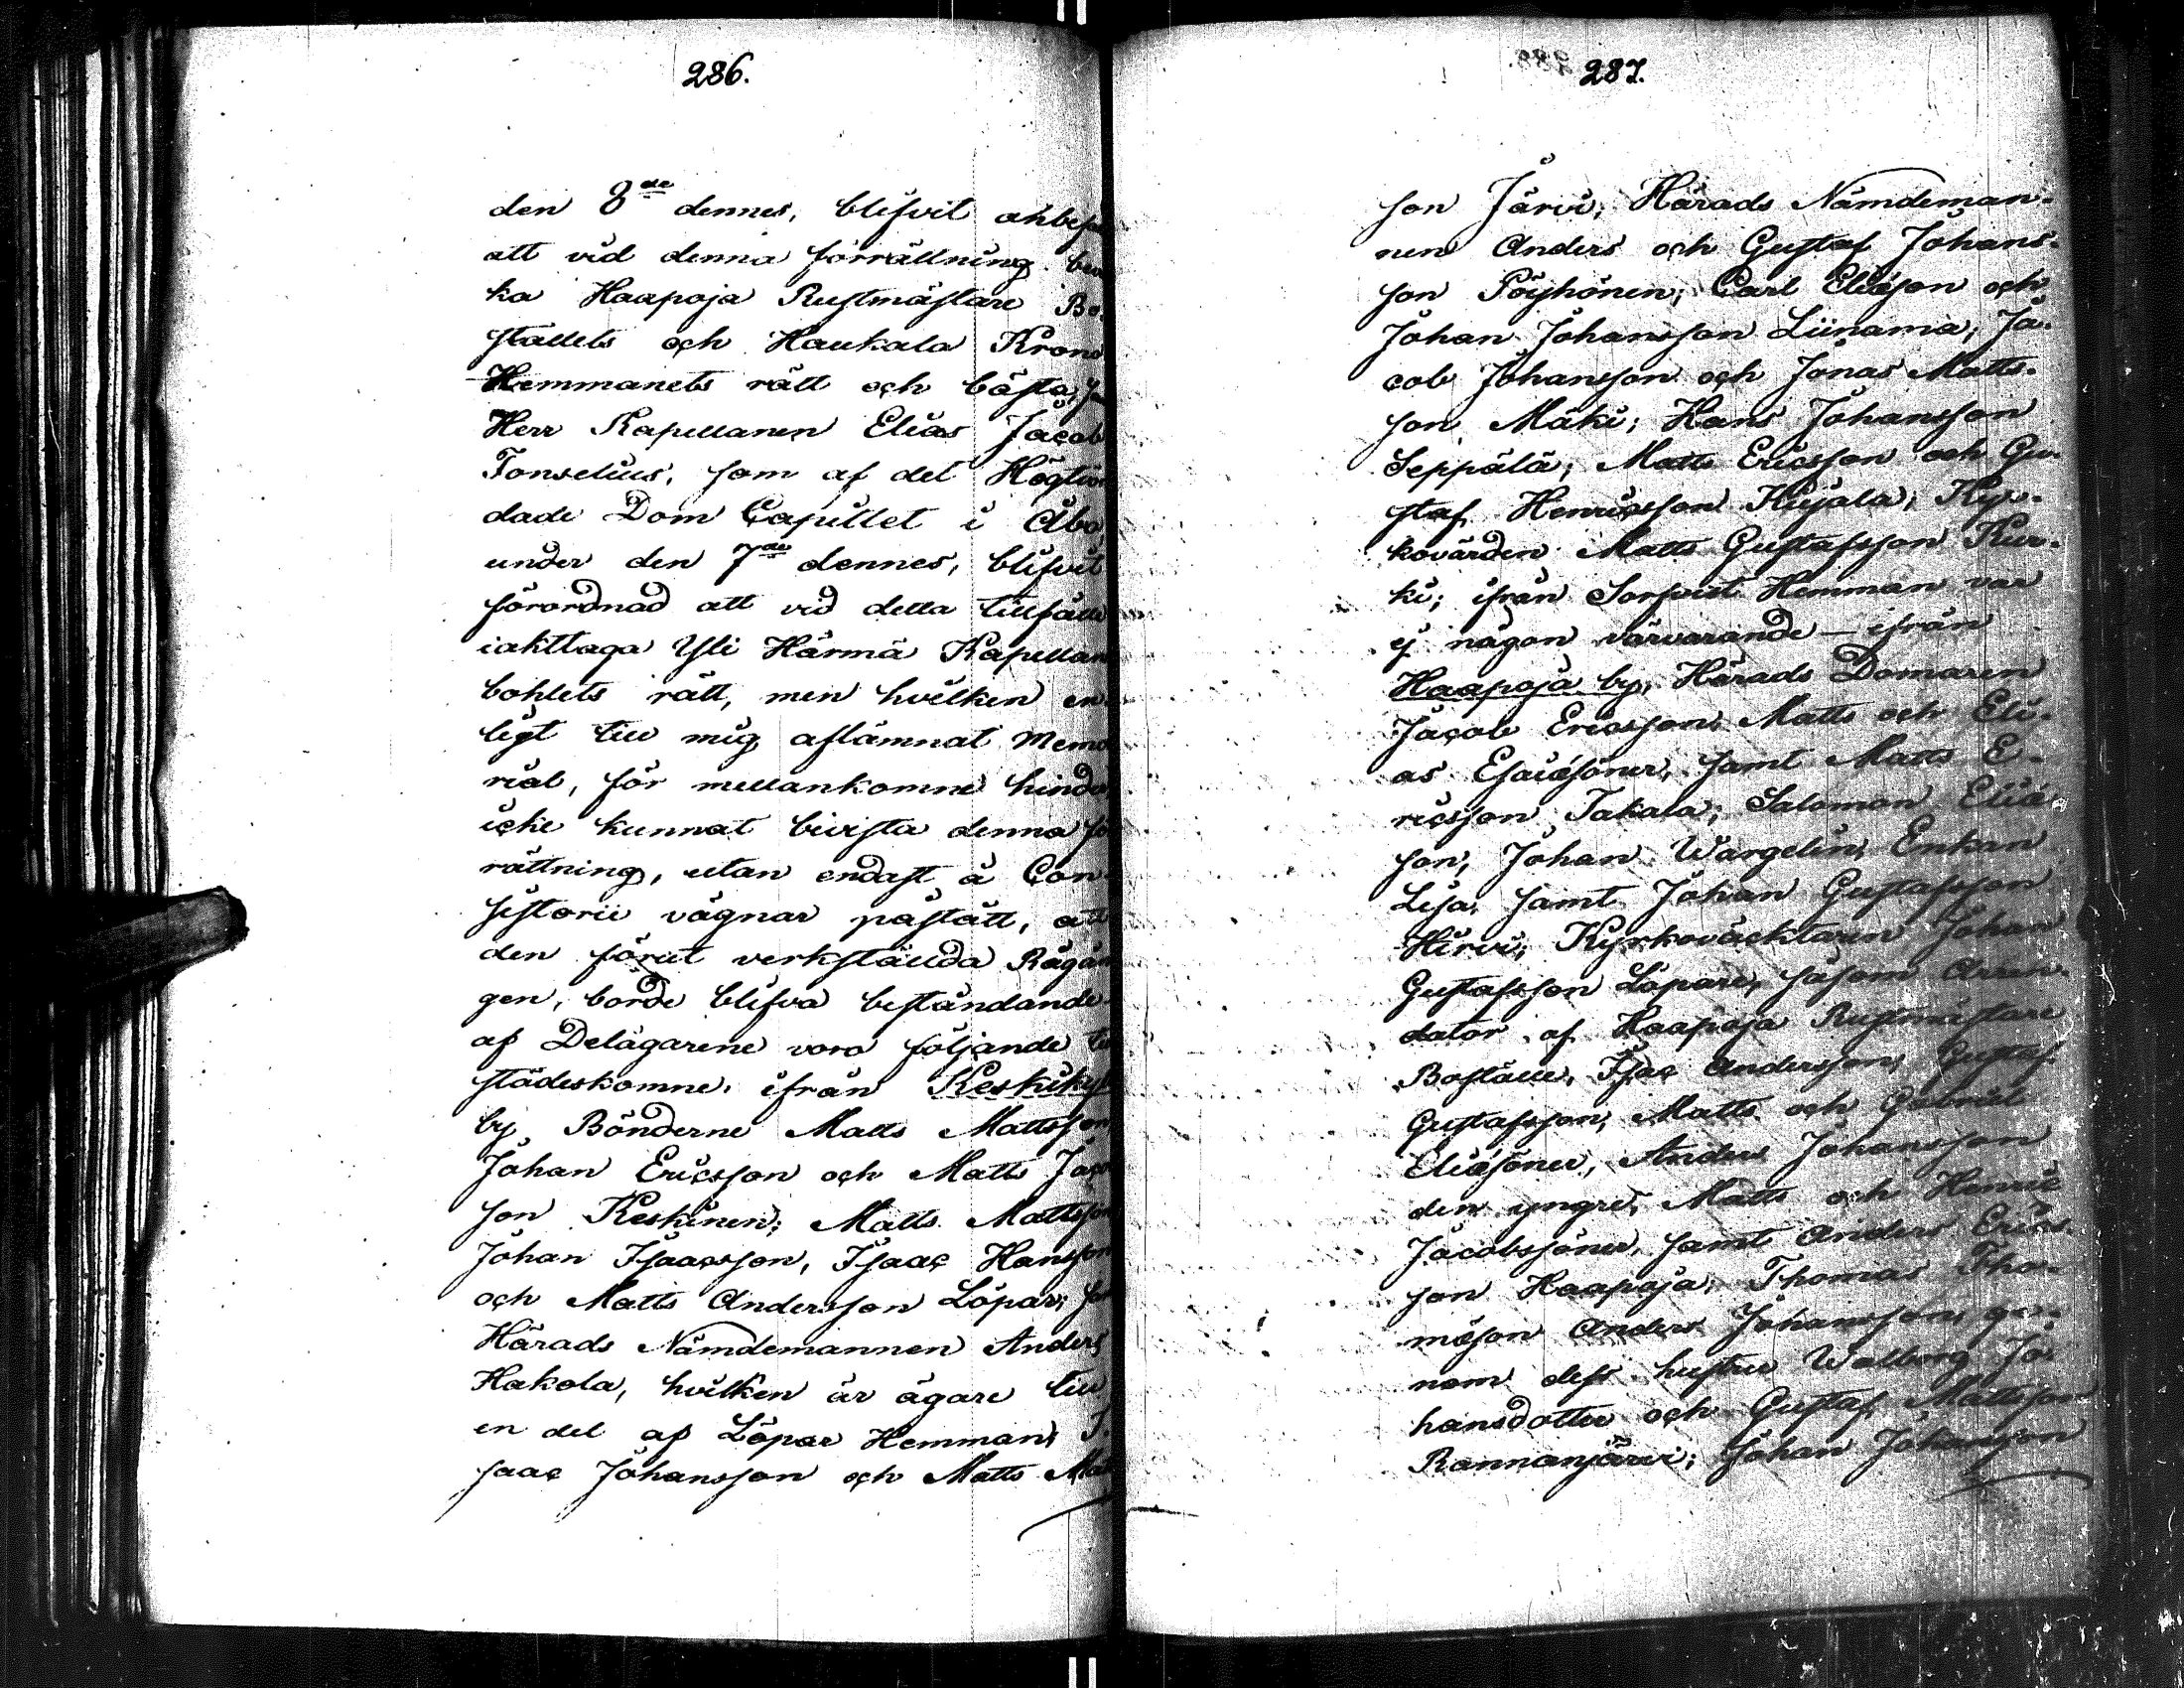 286.
den 8de dennes, blifvit anbef
att vid denna förrättning bev
ka Haapoja Rustmästare Bo
ställets och Haukala Krono
Hemmanets rätt och bästa,
Herr Kapellanen Elias Jacob
Tonselius, som af det Högtvör
dade Dom Capitlet i Åbo,
under den 7de dennes, blifvit
förordnad att vid detta tillfälle
iakttaga Yli Härmä Kapellans
bohlets rätt, men hvilken en-
ligt till mig aflämnat Memo
rial, för mellankomne hinder,
icke kunnat bivista denna för
rättning, utan endast å Con-
sistorii vägnar påstått, att
den förut verkstälda Rågån
gen, borde blifva beståndande
af Delägarene voro följande till
städeskomne, ifrån Keskikylä
by Bönderne Matts Mattsson
Johan Ericsson och Matts Jacobs
son Keskinen; Matts Mattsson
Johan Isaacsson, Isaac Hansson
och Matts Andersson Löpar;
Härads Nämdemannen Anders
Hakola, hvilken är ägare till
en del af Löpar Hemman, I
saac Johansson och Matts Matts
287.
son Järvi; Härads Nämdeman-
nen Anders och Gustaf Johans-
son Pöyhönen; Carl Eliasson och
Johan Johansson Liinama; Ja-
cob Johansson och Jonas Matts-
son Mäki; Hans Johansson
Seppälä; Matts Ericsson och Gu-
staf Henricsson Kujala; Kyr-
kovärden Matts Gustafsson Kur-
ki; ifrån Sorfvist Hemman var
ej någon närvarande – ifrån
Haapoja by, Härads Domaren
Jacob Ericsson, Matts och Eli-
as Esaiæsöner, samt Matts E-
ricsson Takala; Salomon Eliæ
son, Johan Wargelin, Enkan
Lisa, samt Johan Gustafsson
Hirvi; Kyrkoväcktaren Johan
Gustafsson Löpare, såsom Arren-
dator af Haapoja Rustmästare
Boställe, Isac Andersson, Gustaf
Gustafsson, Matts och Gabriel
Eliæsöner, Anders Johansson
den yngre, Matts och Henric
Jacobssöner, samt Anders Erics-
son Haapoja; Thomas Tho-
mæson Anders Johansson, ge-
nom dess hustru Walborg Jo-
hansdotter och Gustaf Mattsson
Rannanjärvi; Johan Johansson